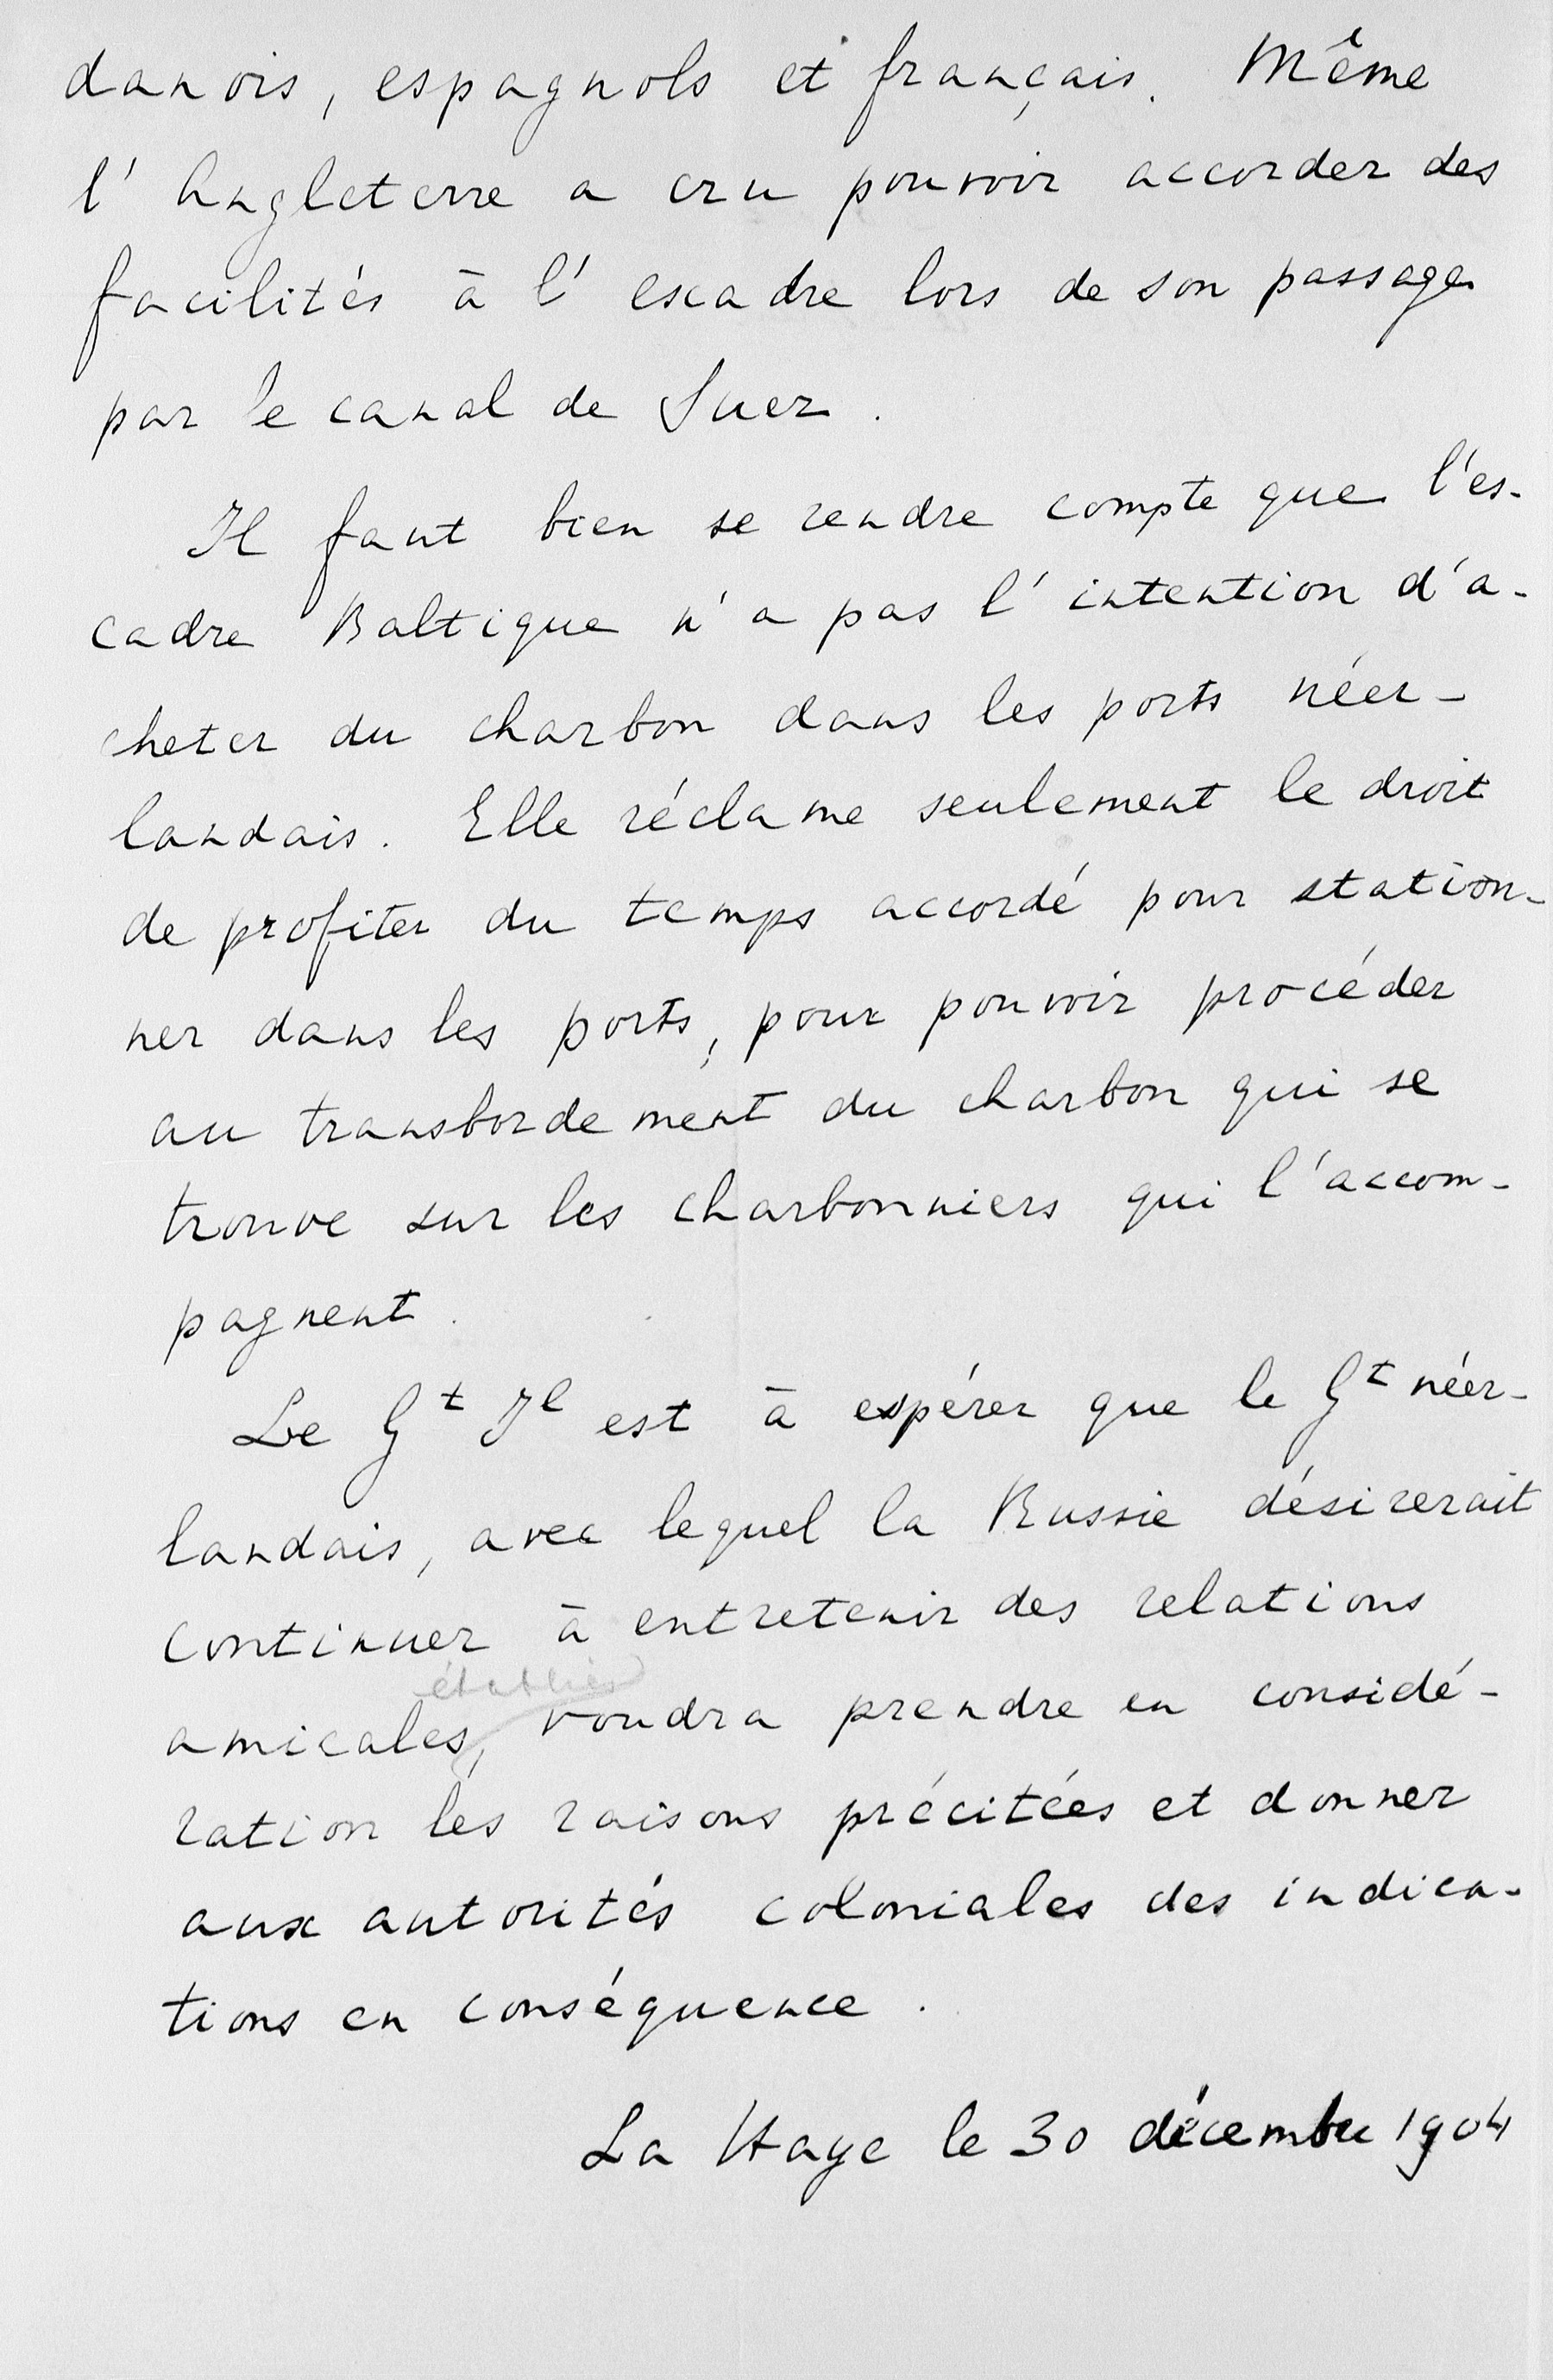 danois, espagnols et français. Même
l'Angleterre a cru pouvoir accorder des
facilités à l'escadre lors de son passage
par le canal de Suez.
Il faut bien se rendre compte que l'es-
cadre Baltique n'a pas l'intention d'a-
cheter du charbon dans les ports néer-
landais. Elle réclame seulement le droit
de profiter du temps accordé pour station-
ner dans les ports, pour pouvoir procéder
au transbordement du charbon qui se
trouve sur les charbonniers qui l'accom-
pagnent.
Le Gt Il est à espérer que le Gt néer-
landais, avec lequel la Russie désirerait
continuer à entretenir des relations
établies
amicales, voudra prendre en considé-
ration les raisons précitées et donner
aux autorités coloniales des indica-
tions en conséquence.
La Haye le 30 décembre 1904